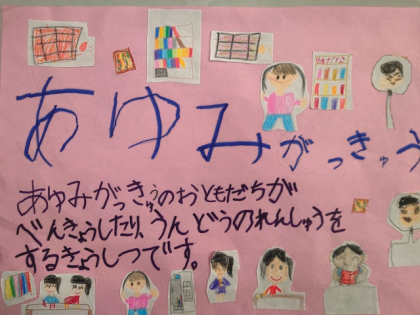 あゆみがっきゅう
あゆみがっきゅうのおともだちが
べんきょうしたり、うんどうのれんしゅうを
するきょうしつです。